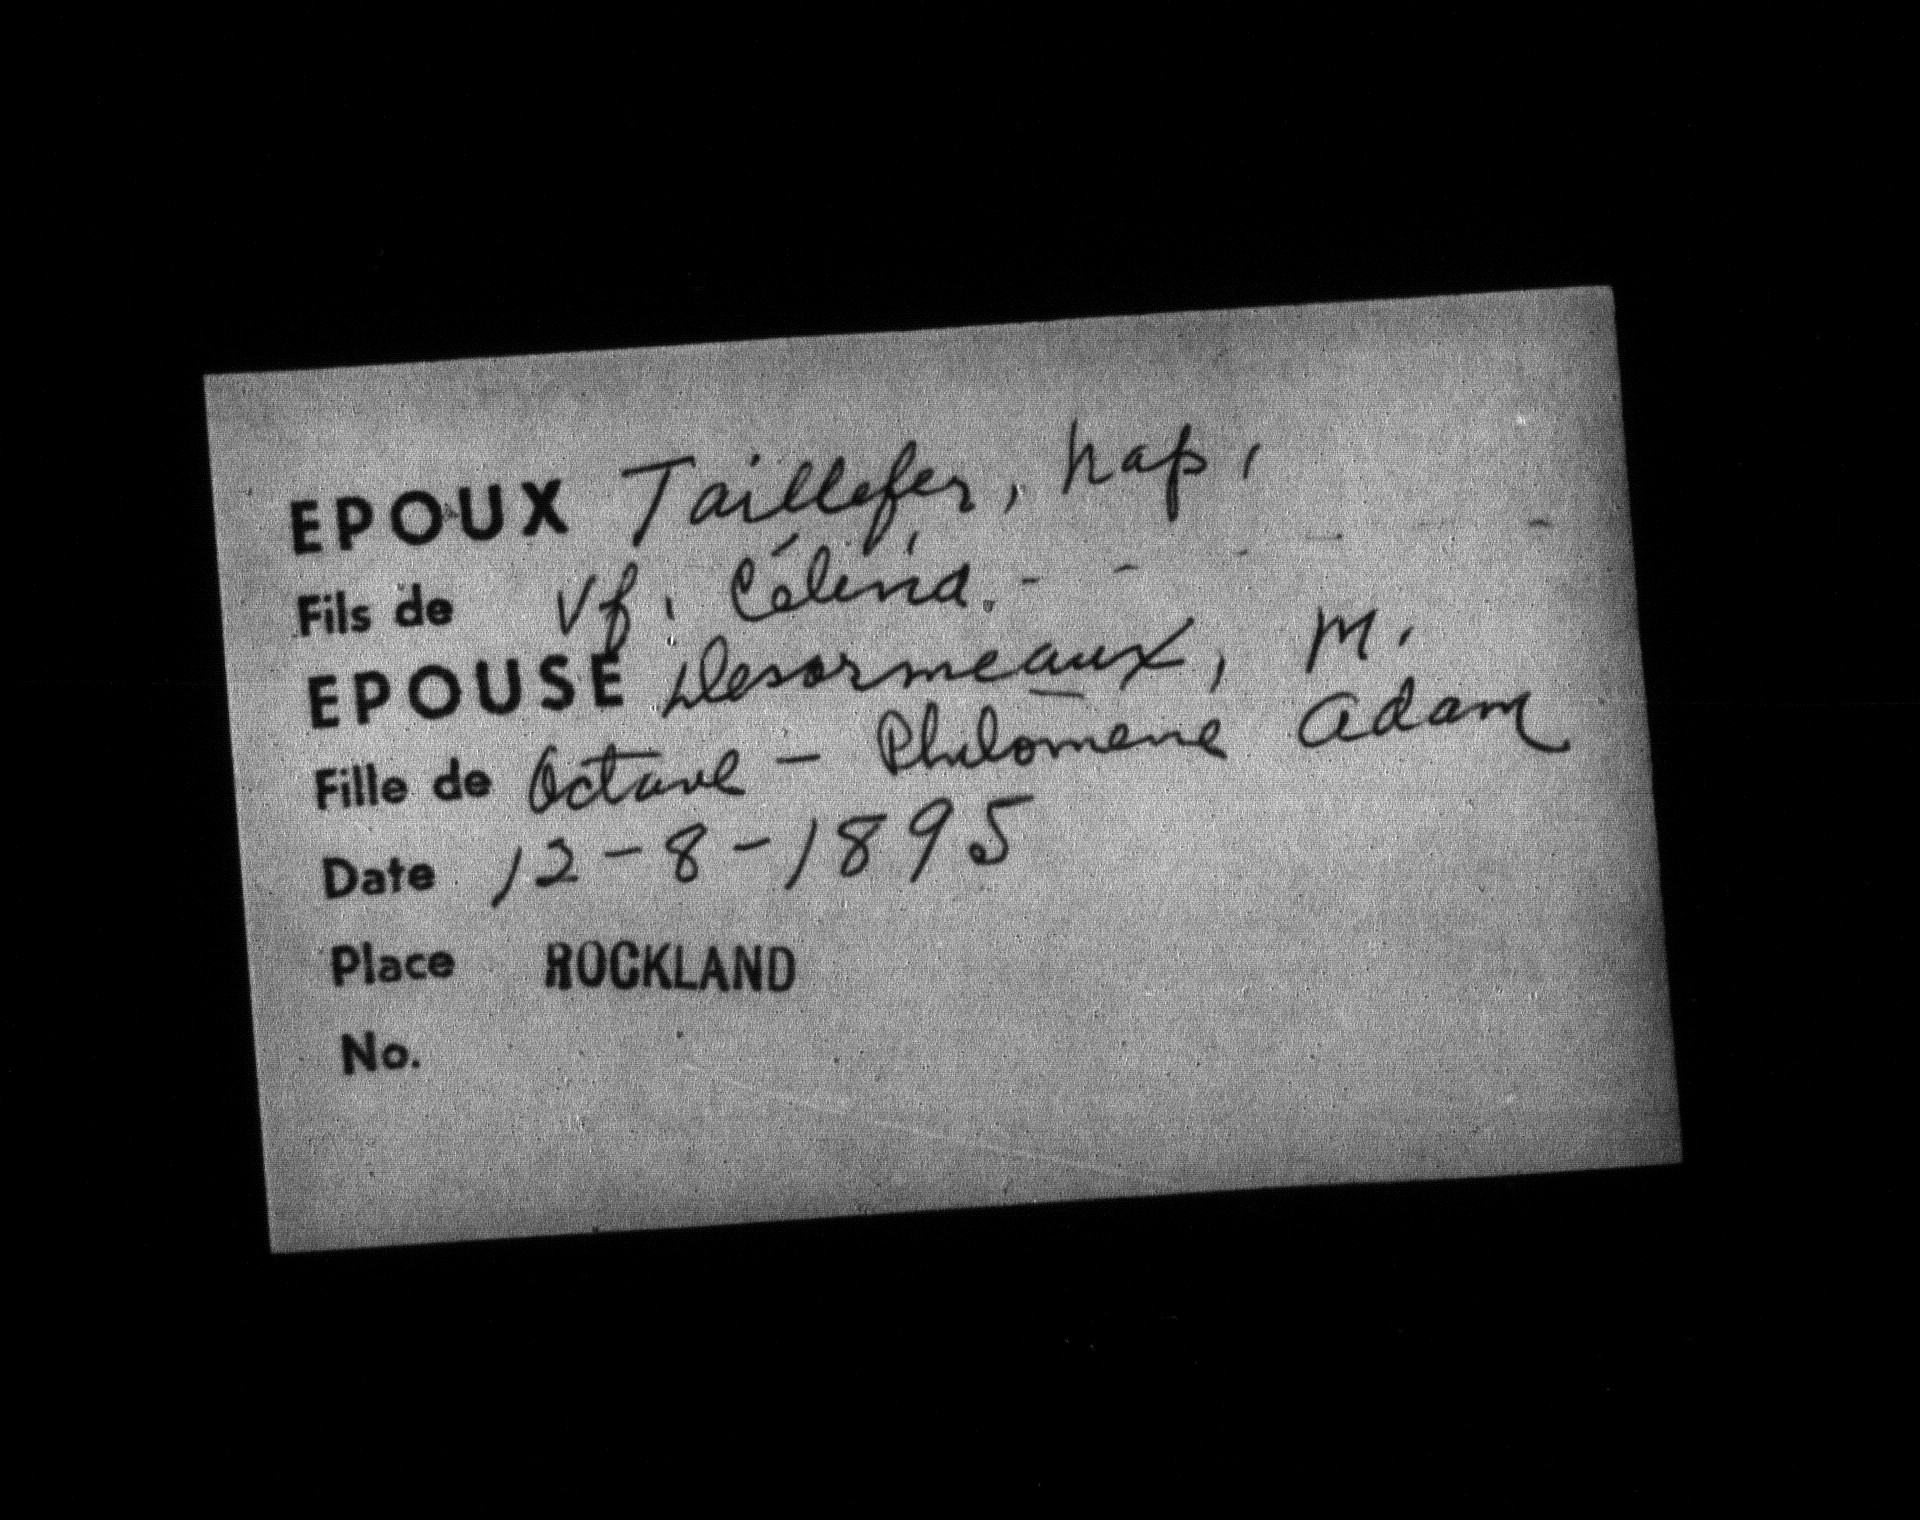 EPOUX Taillefer, Nap.
Fils de Vf. Célina - - - - -
EPOUSE Desormeaux, M.
Fille de Octave - Philomene Adam
Date 12-8-1895
Place ROCKLAND
No.